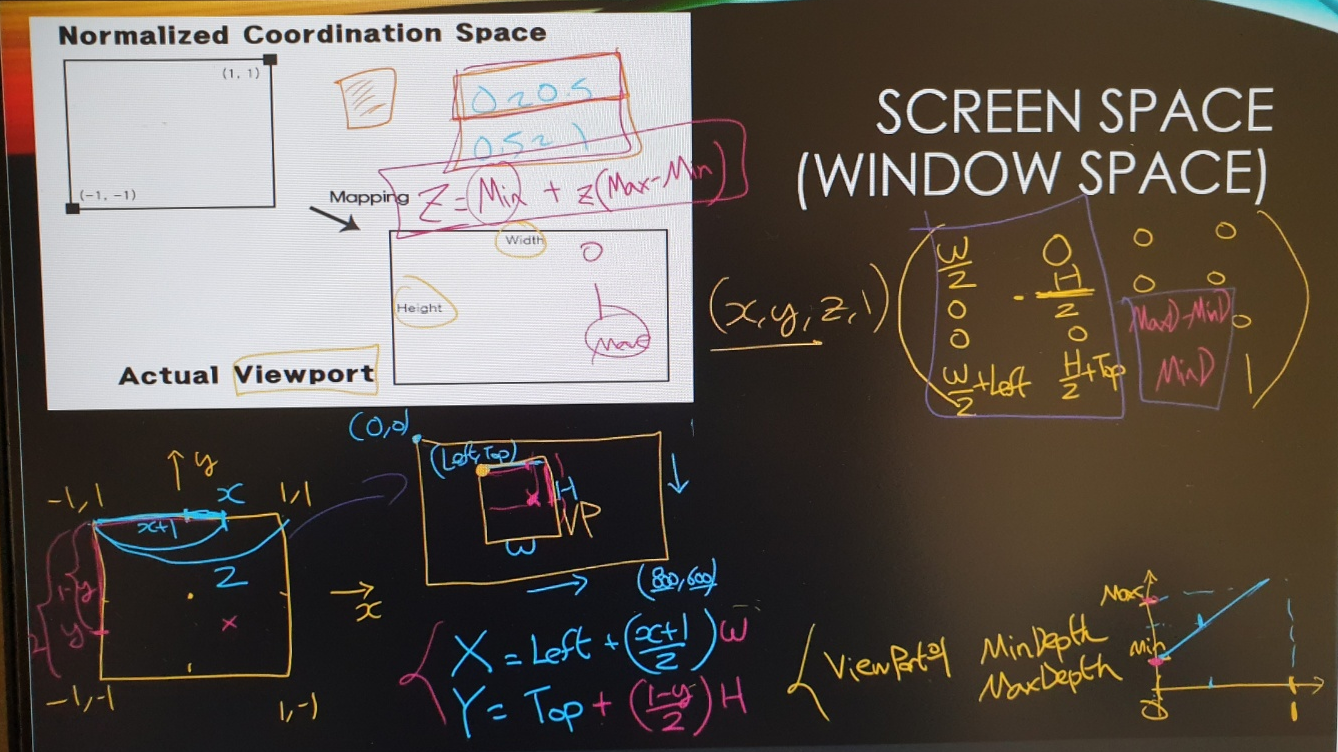 Normalized Coordination Space
(1, 1)
(-1, -1)
0 ~ 0.5
0.5 ~ 1
Mapping
Z = Min + z(Max-Min)
Width
0
Height
1
Actual Viewport
SCREEN SPACE
(WINDOW SPACE)
(x, y, z, 1)
W/2 0 0 0
0 -H/2 0 0
0 0 MaxD-MinD 0
W/2+Left H/2+Top MinD 1
(0,0)
(Left, Top)
H
VP
W
(800,600)
y
-1,1
x
1,1
x+1
2
1-y
y
2
x
-1,-1
1,-1
X = Left + (x+1/2)W
Y = Top + (1-y/2)H
ViewPort의 MinDepth
MaxDepth
Max
Min
0
1